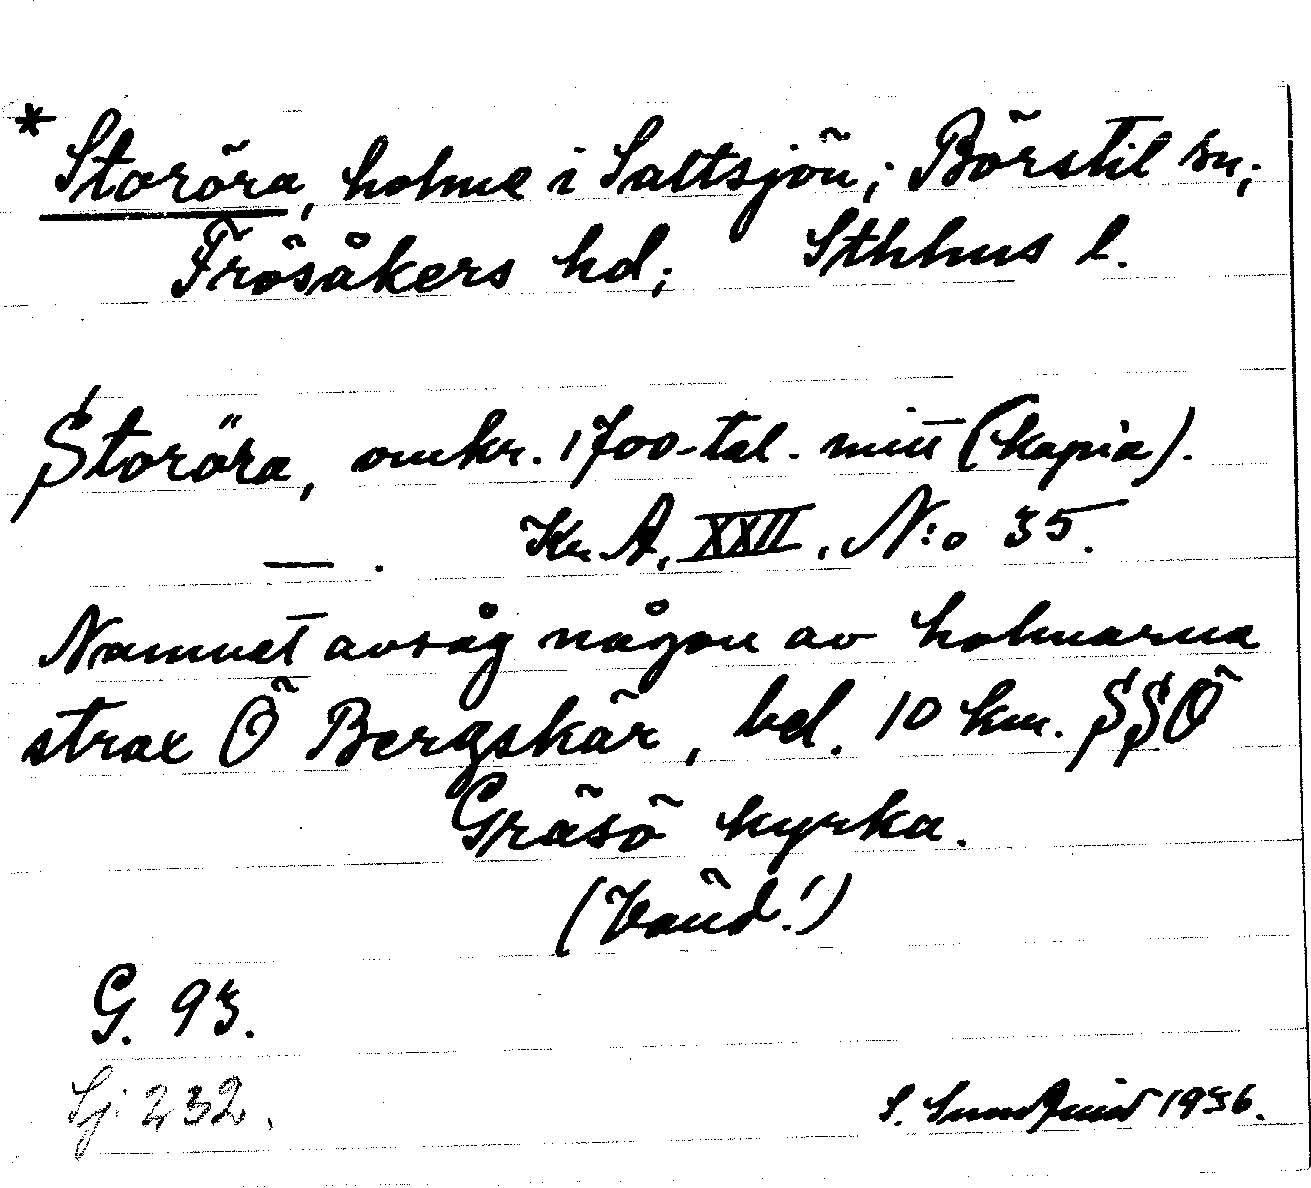 * Storöra, holme i Saltsjön; Börstil sn;
Frösåkers hd; Sthlms l.
Storöra, omkr. 1700-tal. mitt (kopia).
— . Kr. A. XXII. N:o 35.
Namnet avsåg någon av holmarna
strax Ö Bergskär, bel. 10 km. SSÖ
Gräsö kyrka.
(Vänd!)
G. 93.
Sj 232.
S. Sundqvist 1936.